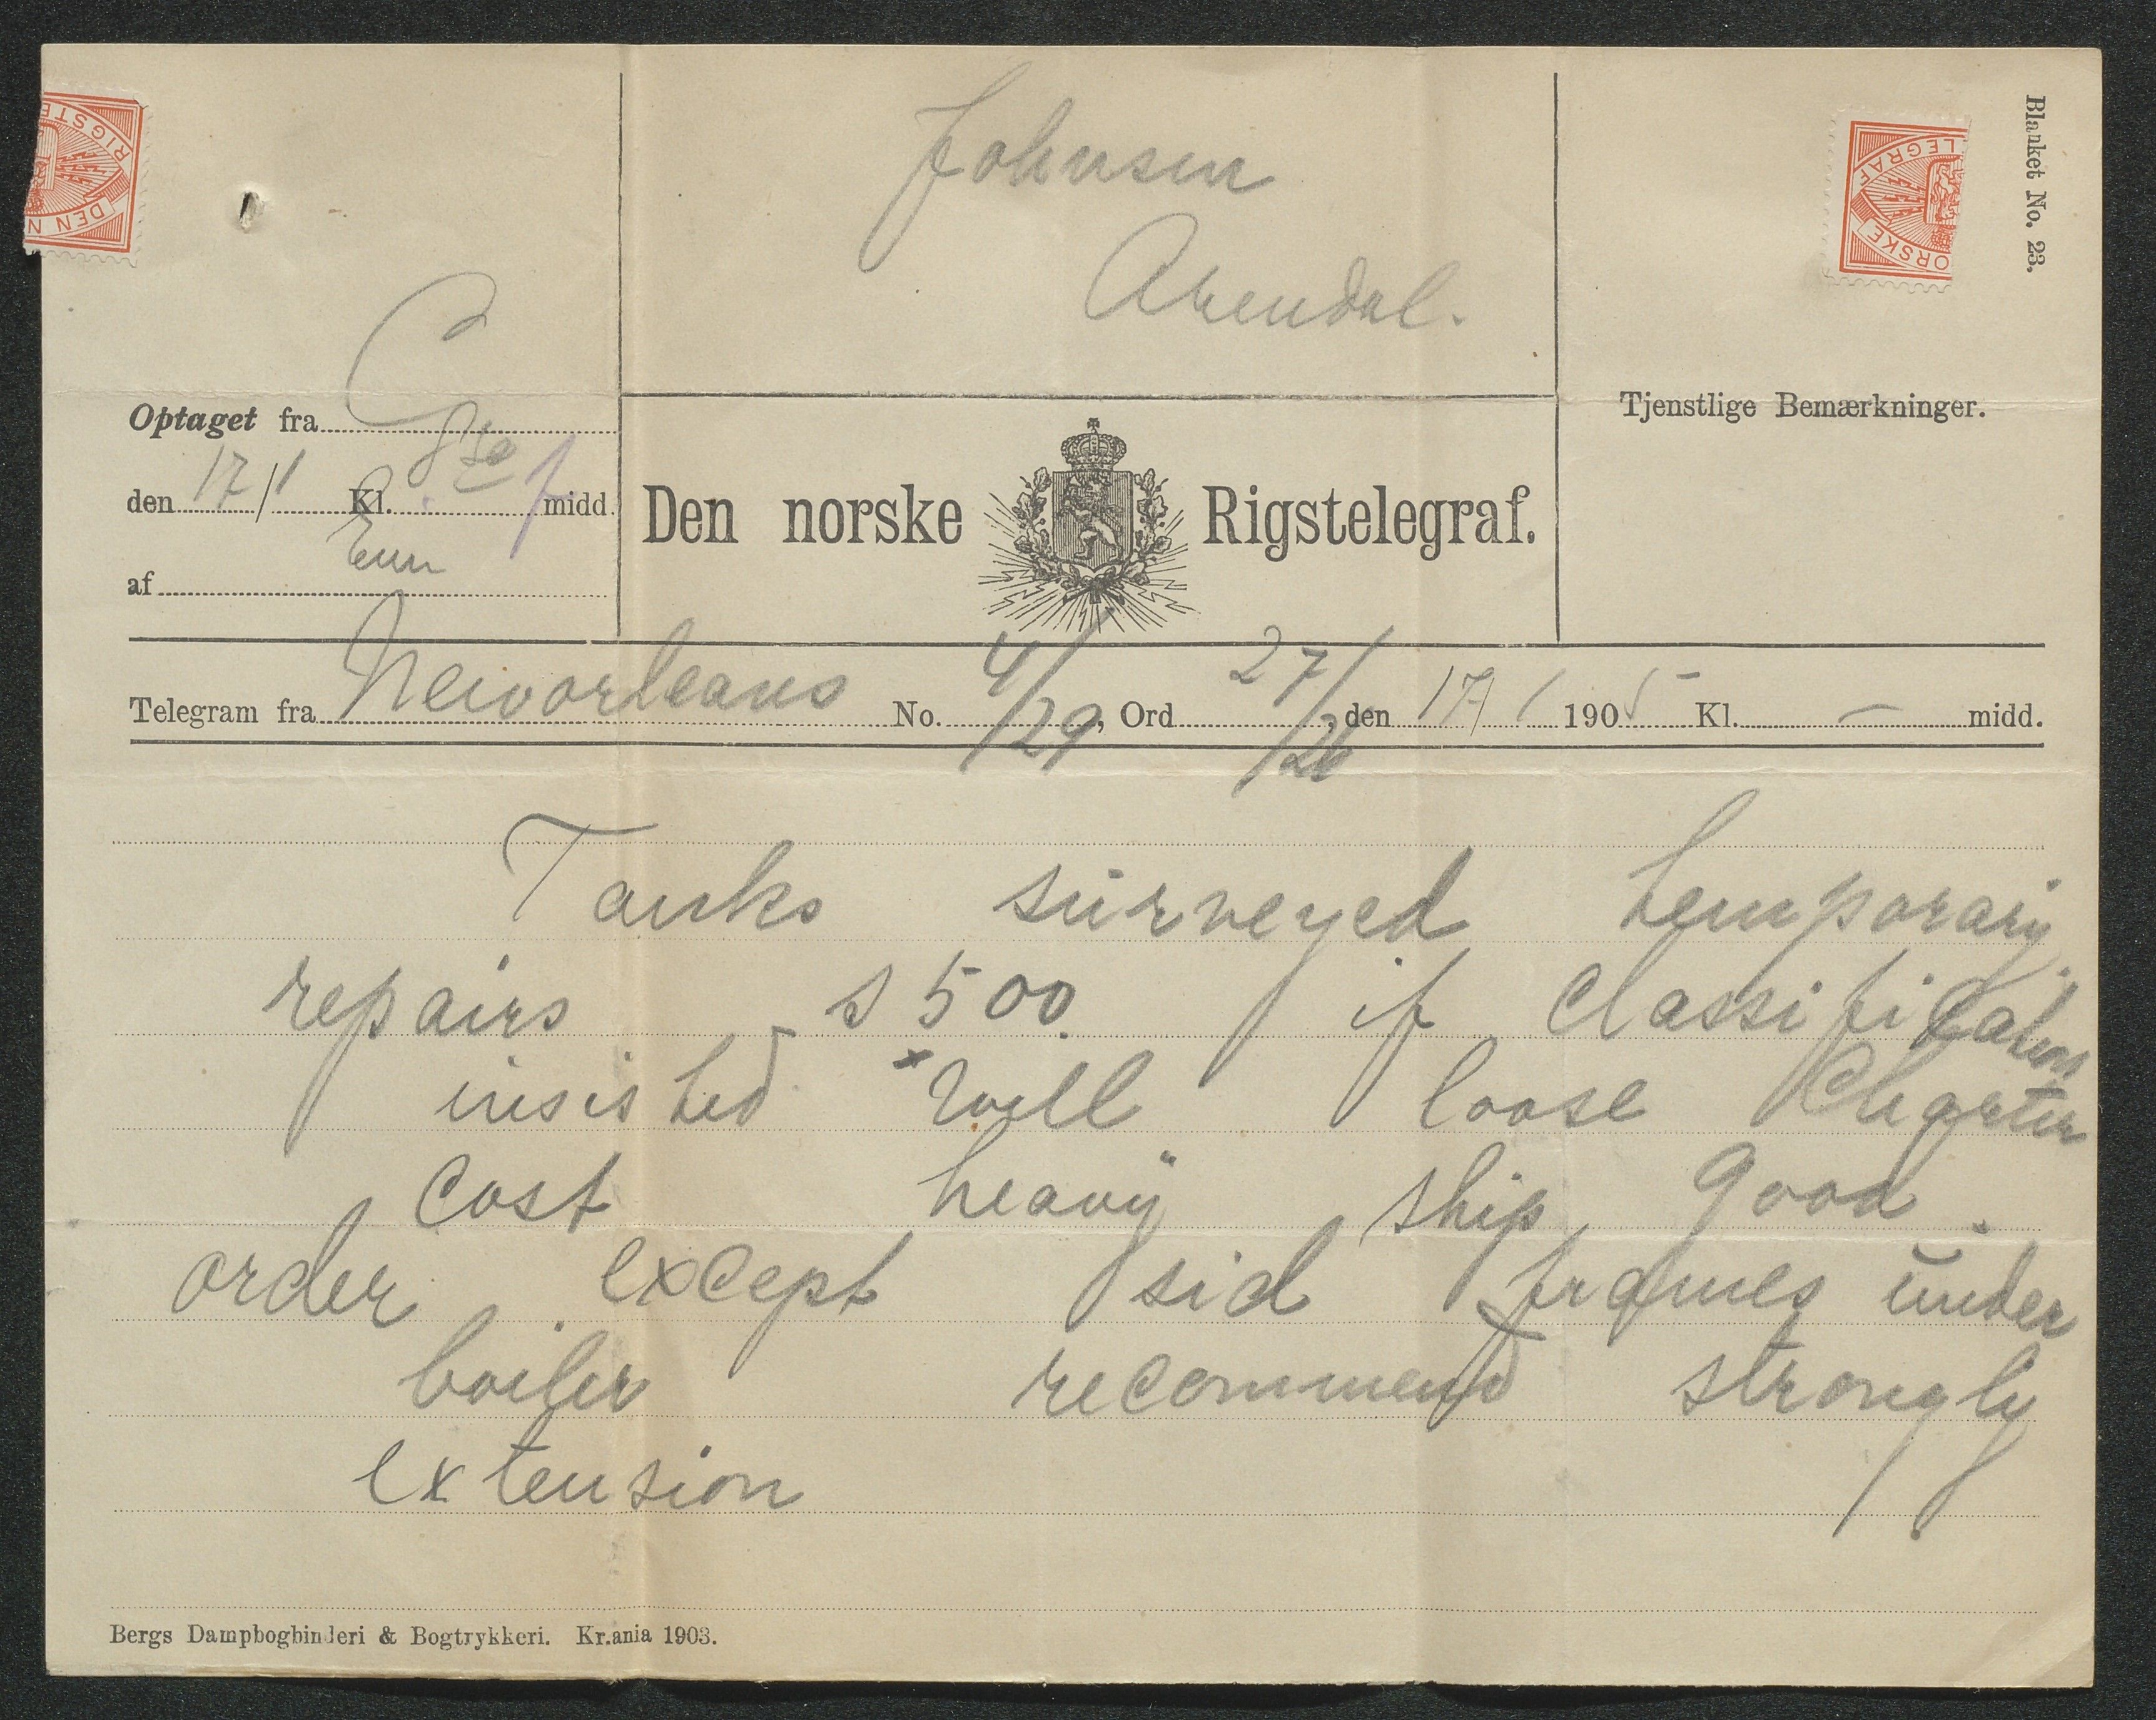 Blanket No. 23.
Johnsen
Arendal.
RIGSTE
DEN N
LEGRAF
ORSKE
Optaget fra C
den 17/1 Kl. 8 50 f midd.
af
Den norske Rigstelegraf.
Tjenstlige Bemærkninger.
Telegram fra Neworleans No. 4/29, Ord 27/26, den 17/1 1905 Kl. – midd.
Tanks surveyed temporary
repairs $500 if classification
insisted will loose Charter
cost heavy ship good
order except sid frames under
boiler recommend strongly
extension
Bergs Dampbogbinderi & Bogtrykkeri. Kr.ania 1903.